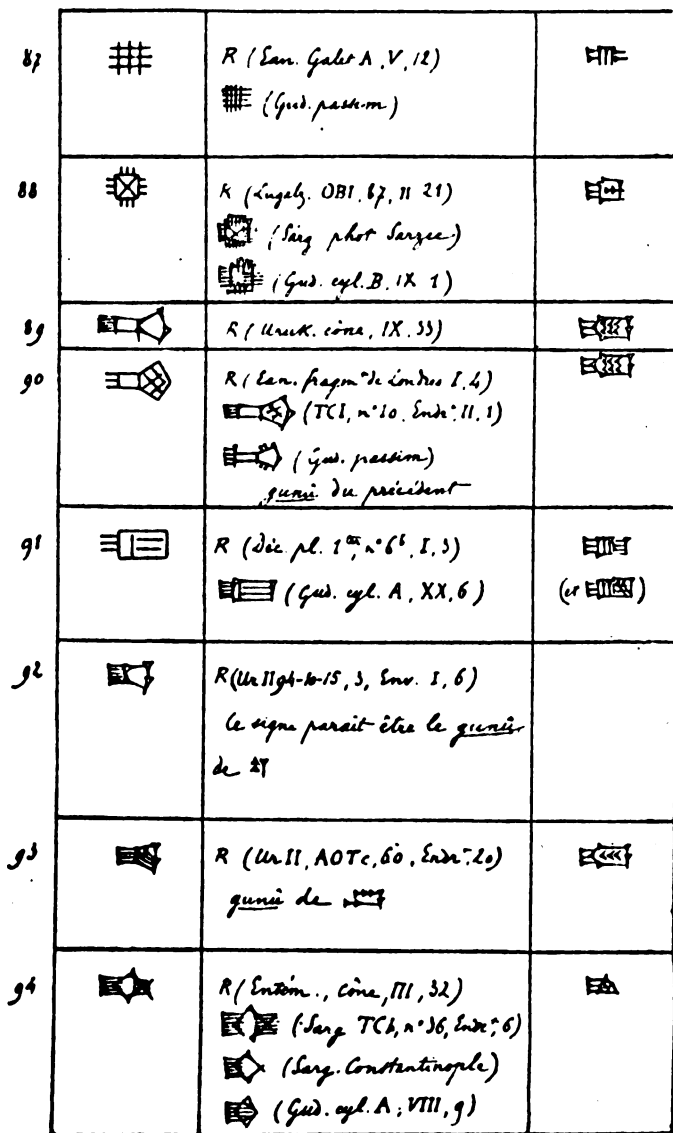 87 R (Ean. Galet A, V, 12)
(Gud. passim)
88 R (Lugalz. OBI, 87, II 21)
(Sarg phot Sarzec)
(Gud. cyl. B, IX 1)
89 R (Uruk. cône, IX, 33)
90 R (Ean. fragmt de Londres I, 4)
(TCI, n° 10, Endr. II, 1)
(Gud. passim)
gunû du précédent
91 R (Déc. pl. 1, n° 6b, I, 3)
(Gud. cyl. A, XX, 6) (et )
92 R (Ur II 94-10-15, 3, Env. I, 6)
Ce signe parait être le gunû
de
93 R (Ur II, AOTc, 60, Endr. 20)
gunû de
94 R (Entém., cône, III, 32)
(Sarg TCI, n° 36, Endr. 6)
(Sarg. Constantinople)
(Gud. cyl. A, VIII, 9)